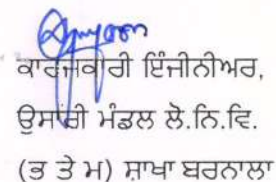 ਕਾਰਜਕਾਰੀ ਇੰਜੀਨੀਅਰ,
ਉਸਾਰੀ ਮੰਡਲ ਲੋ.ਨਿ.ਵਿ.
(ਭ ਤੇ ਮ) ਸ਼ਾਖਾ ਬਰਨਾਲਾ